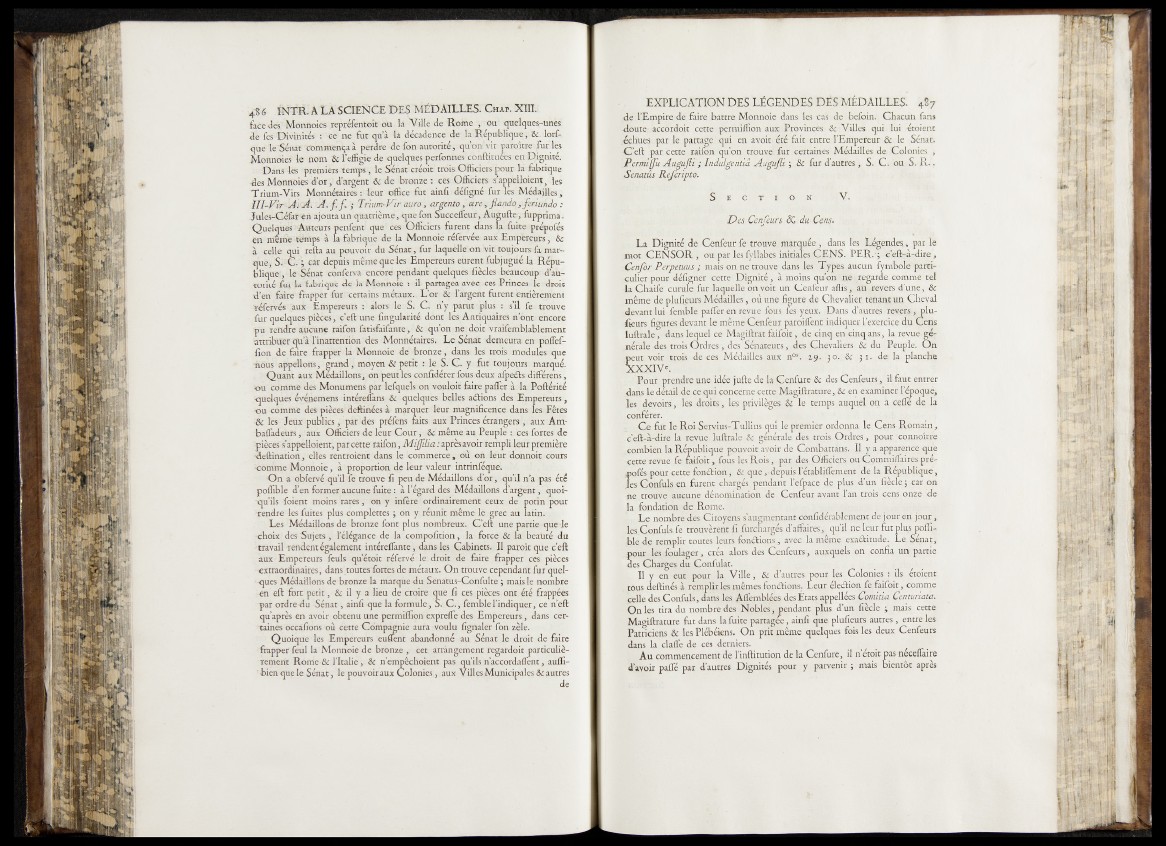 486 INTR. A LA SCIENCE DES MÉDAILLES. CHAP. XIII.
face des Monnoies représentoit ou la Ville de Rome , ou quelques-unes
de ses Divinités : ce ne fut qu'à la décadence de la République, & lors-
que le Sénat commença à perdre de son autorité, qu'on vit paroître sur les
Monnoies le nom & l'effigie de quelques personnes constituées en Dignité.
Dans les premiers temps, le Sénat créoit trois Officiers pour la fabrique
des Monnoies d'or, d'argent & de bronze : ces Officiers s'appelloient, les
Trium-Virs Monnétaires : leur office fut ainsi désigné sur les Médailles,
III-Vir A. A. A. f. f. ; Trium-Vir auro, argento, ære, flando, feriundo :
Jules-César en ajouta un quatrième, que son Successeur, Auguste, supprima.
Quelques Auteurs pensent que ces Officiers furent dans la suite préposés
en même temps à la fabrique de la Monnoie réservée aux Empereurs, &
à celle qui resta au pouvoir du Sénat, sur laquelle on vit toujours sa mar-
que, S. C. ; car depuis même que les Empereurs eurent subjugué la Répu-
blique, le Sénat conserva encore pendant quelques siècles beaucoup d'au-
torité sur la fabrique de la Monnoie : il partagea avec ces Princes le droit
d'en faire frapper sur certains métaux. L'or & l'argent furent entièrement
réservés aux Empereurs : alors le S. C. n'y parut plus : s'il se trouve
sur quelques pièces, c'est une singularité dont les Antiquaires n'ont encore
pu rendre aucune raison satisfaisante, & qu'on ne doit vraisemblablement
attribuer qu'à l'inattention des Monnétaires. Le Sénat demeura en posses-
sion de faire frapper la Monnoie de bronze, dans les trois modules que
nous appellons, grand, moyen & petit : le S. C. y fut toujours marqué.
Quant aux Médaillons, on peut les considérer sous deux aspects différens,
ou comme des Monumens par lesquels on vouloit faire passer à la Postérité
quelques événemens intéressans & quelques belles actions des Empereurs,
ou comme des pièces destinées à marquer leur magnificence dans les Fêtes
& les Jeux publics, par des présens faits aux Princes étrangers, aux Am-
bassadeurs, aux Officiers de leur Cour, & même au Peuple : ces sortes de
pièces s'appelloient, par cette raison, Missilia : après avoir rempli leur première
destination, elles rentroient dans le commerce, où on leur donnoit cours
comme Monnoie, à proportion de leur valeur intrinséque.
On a observé qu'il se trouve si peu de Médaillons d'or, qu'il n'a pas été
possible d'en former aucune suite : à l'égard des Médaillons d'argent, quoi-
qu'ils soient moins rares, on y insère ordinairement ceux de potin pour
rendre les suites plus complettes ; on y réunit même le grec au latin.
Les Médaillons de bronze sont plus nombreux. C'est une partie que le
choix des Sujets, l'élégance de la composition, la force & la beauté du
travail rendent également intéressante, dans les Cabinets. Il paroit que c'est
aux Empereurs seuls qu'étoit réservé le droit de faire frapper ces pièces
extraordinaires, dans toutes sortes de métaux. On trouve cependant sur quel-
ques Médaillons de bronze la marque du Senatus-Consulte ; mais le nombre
en est fort petit, & il y a lieu de croire que si ces pièces ont été frappées
par ordre du Sénat, ainsi que la formule, S. C., semble l'indiquer, ce n'est
qu'après en avoir obtenu une permission expresse des Empereurs, dans cer-
taines occasions où cette Compagnie aura voulu signaler son zèle.
Quoique les Empereurs eussent abandonné au Sénat le droit de faire
frapper seul la Monnoie de bronze, cet arrangement regardoit particuliè-
rement Rome & l'Italie, & n'empêchoient pas qu'ils n'accordassent, aussi-
bien que le Sénat, le pouvoir aux Colonies, aux Villes Municipales & autres
de
EXPLICATION DES LÉGENDES DES MÉDAILLES. 487
de l'Empire de faire battre Monnoie dans les cas de besoin. Chacun sans
doute accordoit cette permission aux Provinces & Villes qui lui étoient
échues par le partage qui en avoit été fait entre l'Empereur & le Sénat.
C'est par cette raison qu'on trouve sur certaines Médailles de Colonies,
Permissu Augusti ; Indulgentiâ Augusti ; & sur d'autres, S. C. ou S. R..
Senatûs Rescripto.
SECTION V.
Des Censeurs & du Cens.
La Dignité de Censeur se trouve marquée, dans les Légendes, par le
mot CENSOR, ou par les syllabes initiales CENS. PER. ; c'est-à-dire,
Censor Perpetuus ; mais on ne trouve dans les Types aucun symbole parti-
culier pour désigner cette Dignité, à moins qu'on ne regarde comme tel
la Chaise curule sur laquelle on voit un Censeur assis, au revers d'une, &
même de plusieurs Médailles, où une figure de Chevalier tenant un Cheval
devant lui semble passer en revue sous ses yeux. Dans d'autres revers, plu-
sieurs figures devant le même Censeur paroissent indiquer l'exercice du Cens
lustrale, dans lequel ce Magistrat faisoit, de cinq en cinq ans, la revue gé-
nérale des trois Ordres, des Sénateurs, des Chevaliers & du Peuple. On
peut voir trois de ces Médailles aux nos. 29. 30. & 31. de la planche
XXXIVe.
Pour prendre une idée juste de la Censure & des Censeurs, il faut entrer
dans le détail de ce qui concerne cette Magistrature, & en examiner l'époque,
les devoirs, les droits, les privilèges & le temps auquel on a cessé de la
conférer.
Ce fut le Roi Servius-Tullius qui le premier ordonna le Cens Romain,
c'est-à-dire la revue lustrale & générale des trois Ordres, pour connoître
combien la République pouvoit avoir de Combattans. Il y a apparence que
cette revue se faisoit, sous les Rois, par des Officiers ou Commissaires pré-
posés pour cette fonction, & que, depuis l'établissement de la République,
les Consuls en furent chargés pendant l'espace de plus d'un siècle ; car on
ne trouve aucune dénomination de Censeur avant l'an trois cens onze de
la fondation de Rome.
Le nombre des Citoyens s'augmentant considérablement de jour en jour,
les Consuls se trouvèrent si surchargés d'affaires, qu'il ne leur fut plus possi-
ble de remplir toutes leurs fonctions, avec la même exactitude. Le Sénat,
pour les soulager, créa alors des Censeurs, auxquels on confia un partie
des Charges du Consulat.
Il y en eut pour la Ville, & d'autres pour les Colonies : ils étoient
tous destinés à remplir les mêmes fonctions. Leur élection se faisoit, comme
celle des Consuls, dans les Assemblées des Etats appellées Comitia Centuriata.
On les tira du nombre des Nobles, pendant plus d'un siècle ; mais cette
Magistrature fut dans la suite partagée, ainsi que plusieurs autres, entre les
Patriciens & les Plébéiens. On prit même quelques fois les deux Censeurs
dans la classe de ces derniers.
Au commencement de l'institution de la Censure, il n'étoit pas nécessaire
d'avoir passé par d'autres Dignités pour y parvenir ; mais bientôt après